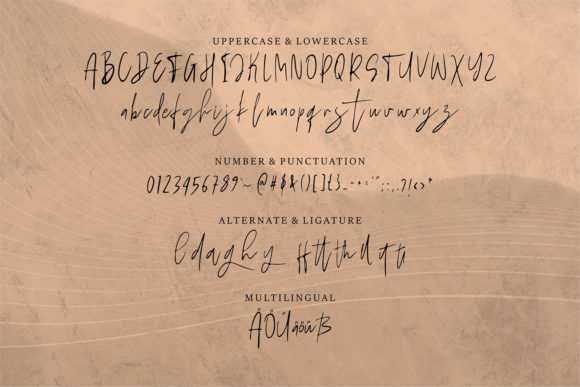 UPPERCASE & LOWERCASE
ABCDEFGHIJKLMNOPQRSTUVWXYZ
abcdefghijklmnopqrstuvwxyz
NUMBER & PUNCTUATION
0123456789`~@#$&()[]{}_-+='";:,.?!<>*
ALTERNATE & LIGATURE
MULTILINGUAL
ÄÖÜäöüß